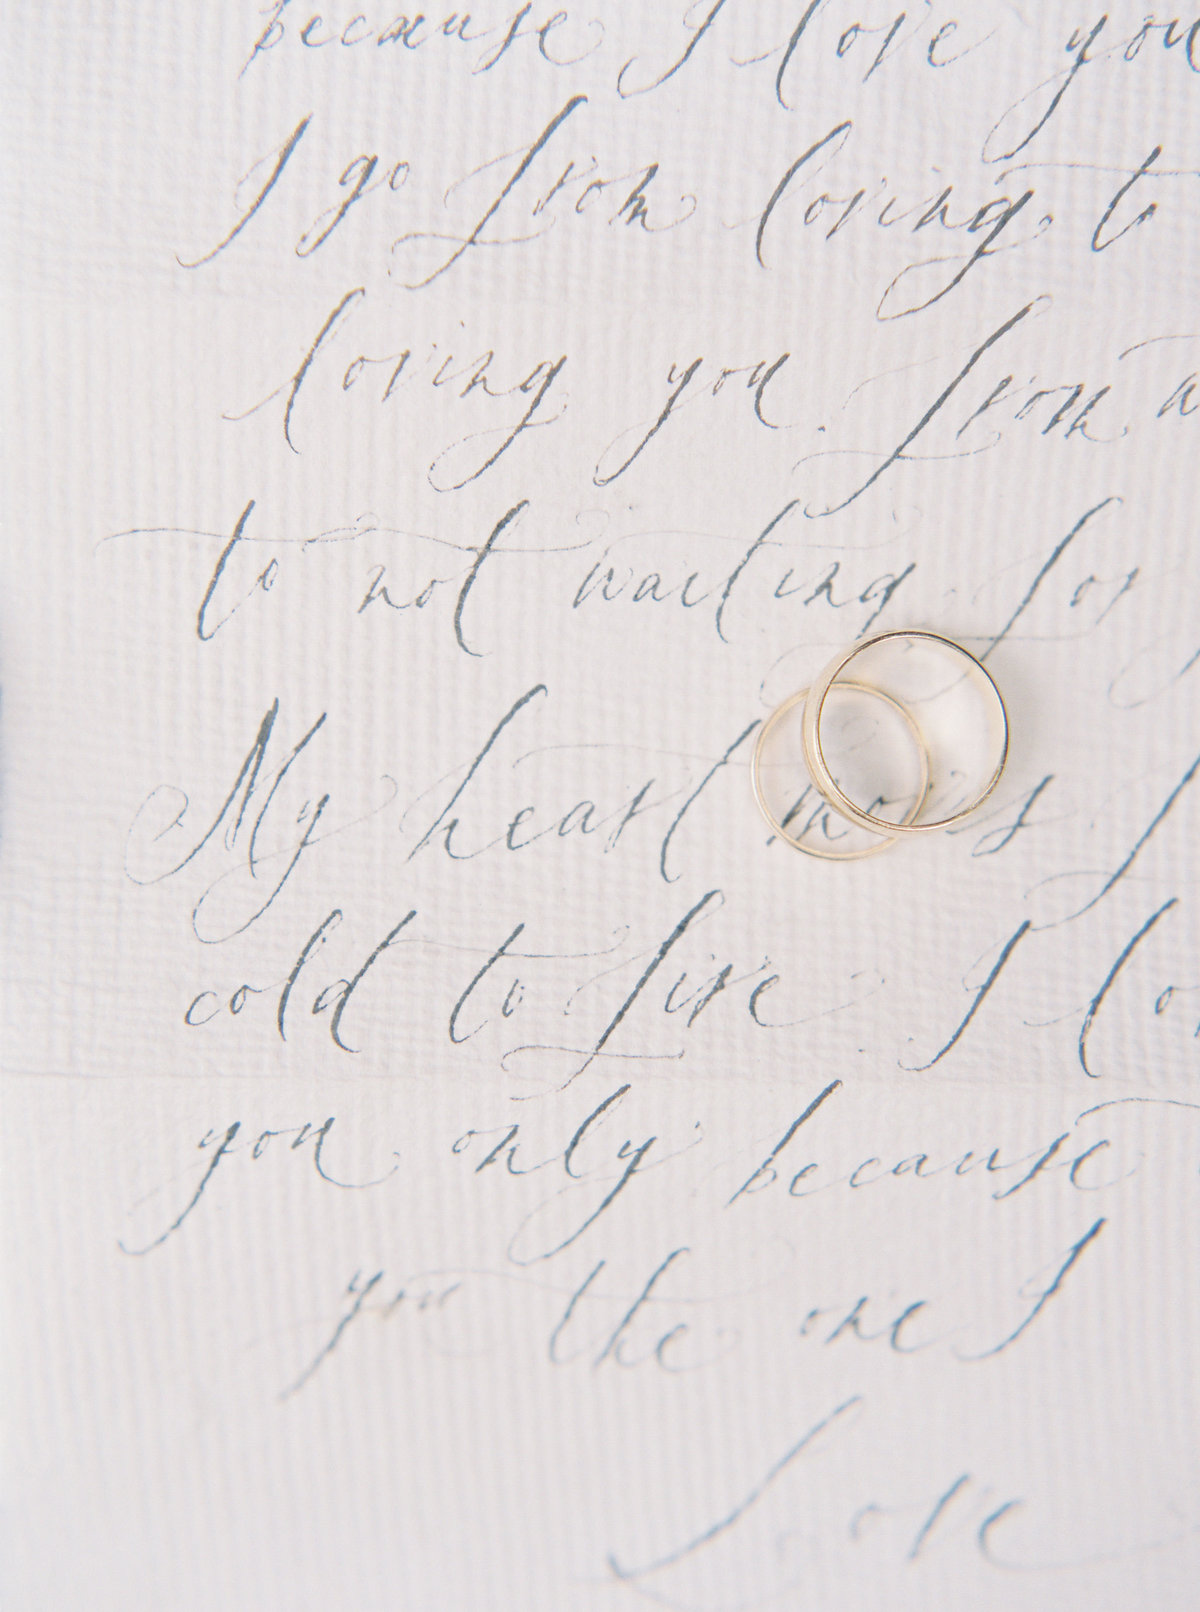 because I love you
I go from loving to
loving you. from
to not waiting for
My heart moves f
cold to fire. I lo
you only because
you the one I
Love